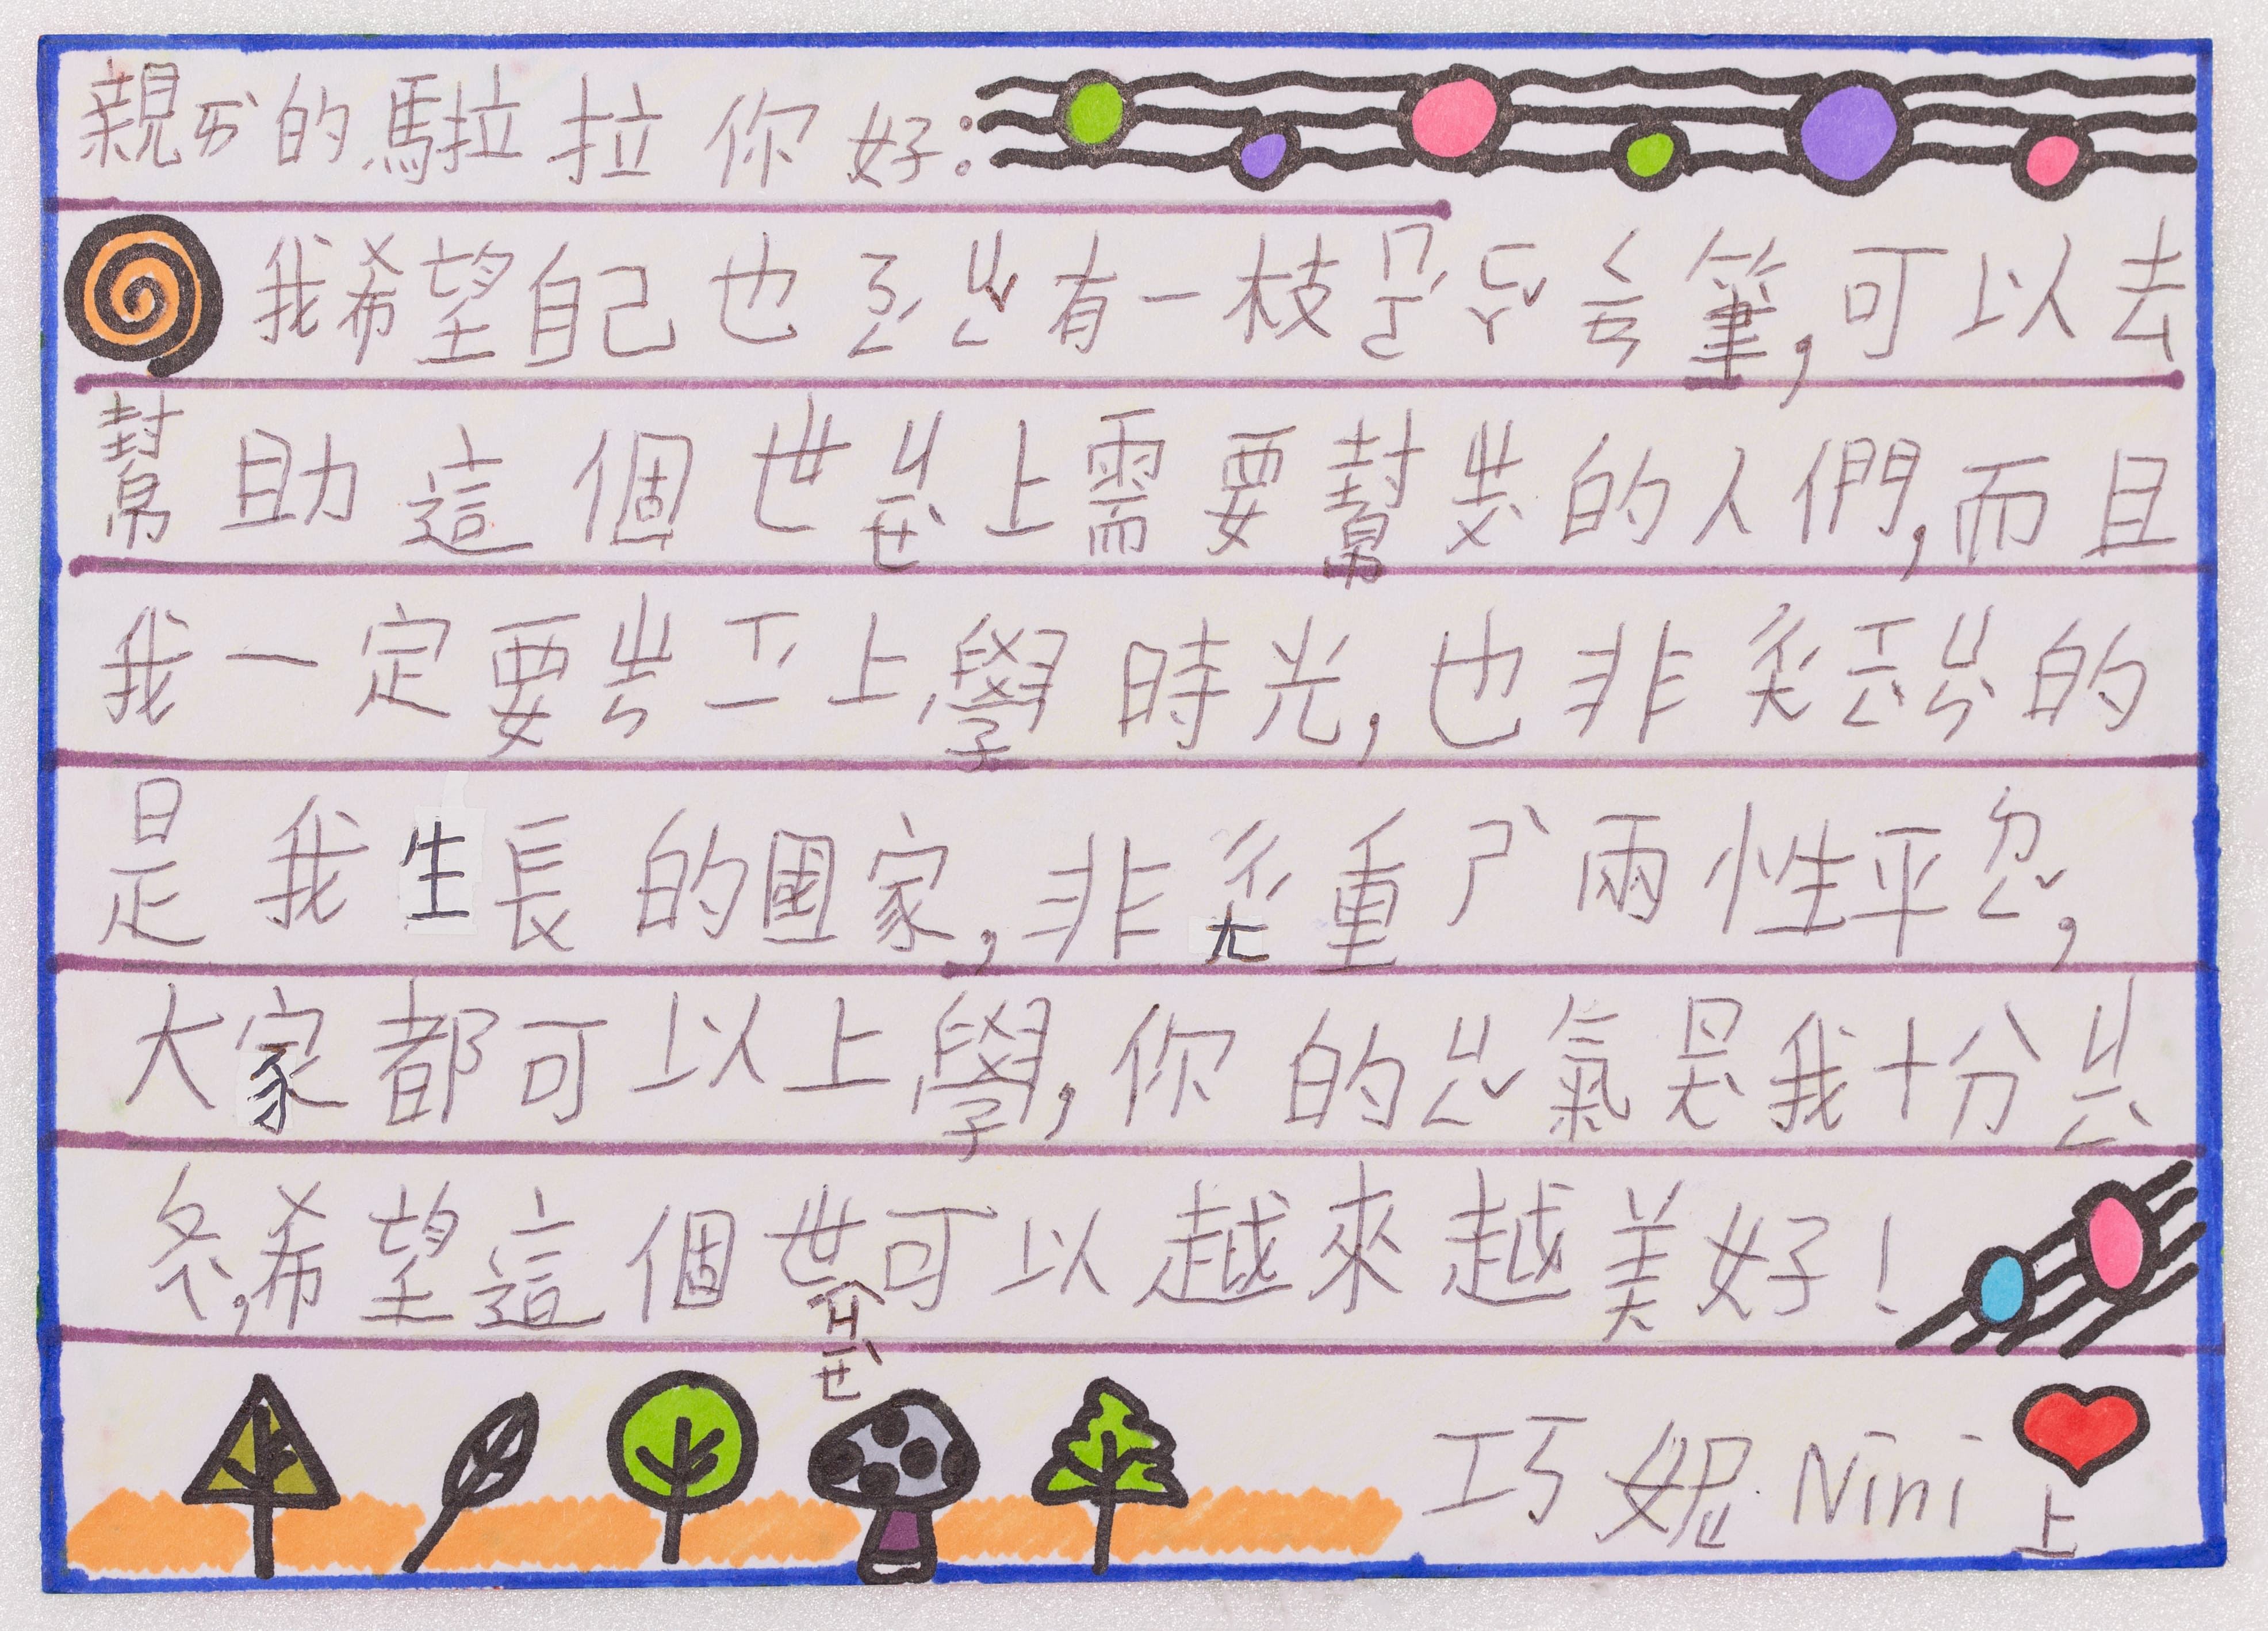 親ㄞˋ的馬拉拉你好:
我希望自己也ㄋㄥˊㄩㄥˇ有一枝ㄇㄛˊㄈㄚˇㄑㄧㄢ筆,可以去
幫助這個世ㄐㄧㄝˋ上需要幫ㄓㄨˋ的人們,而且
我一定要ㄓㄣㄒㄧˊ上學時光,也非ㄔㄤˊㄒㄧㄥˋㄩㄣˋ的
是我生長的國家,非ㄔㄤˊ重ㄕˋ兩性平ㄉㄥˇ,
大家都可以上學,你的ㄩㄥˇ氣是我十分ㄐㄧㄥˋ
ㄆㄟˋ,希望這個世ㄐㄧㄝˋ可以越來越美好!
巧妮Nini上